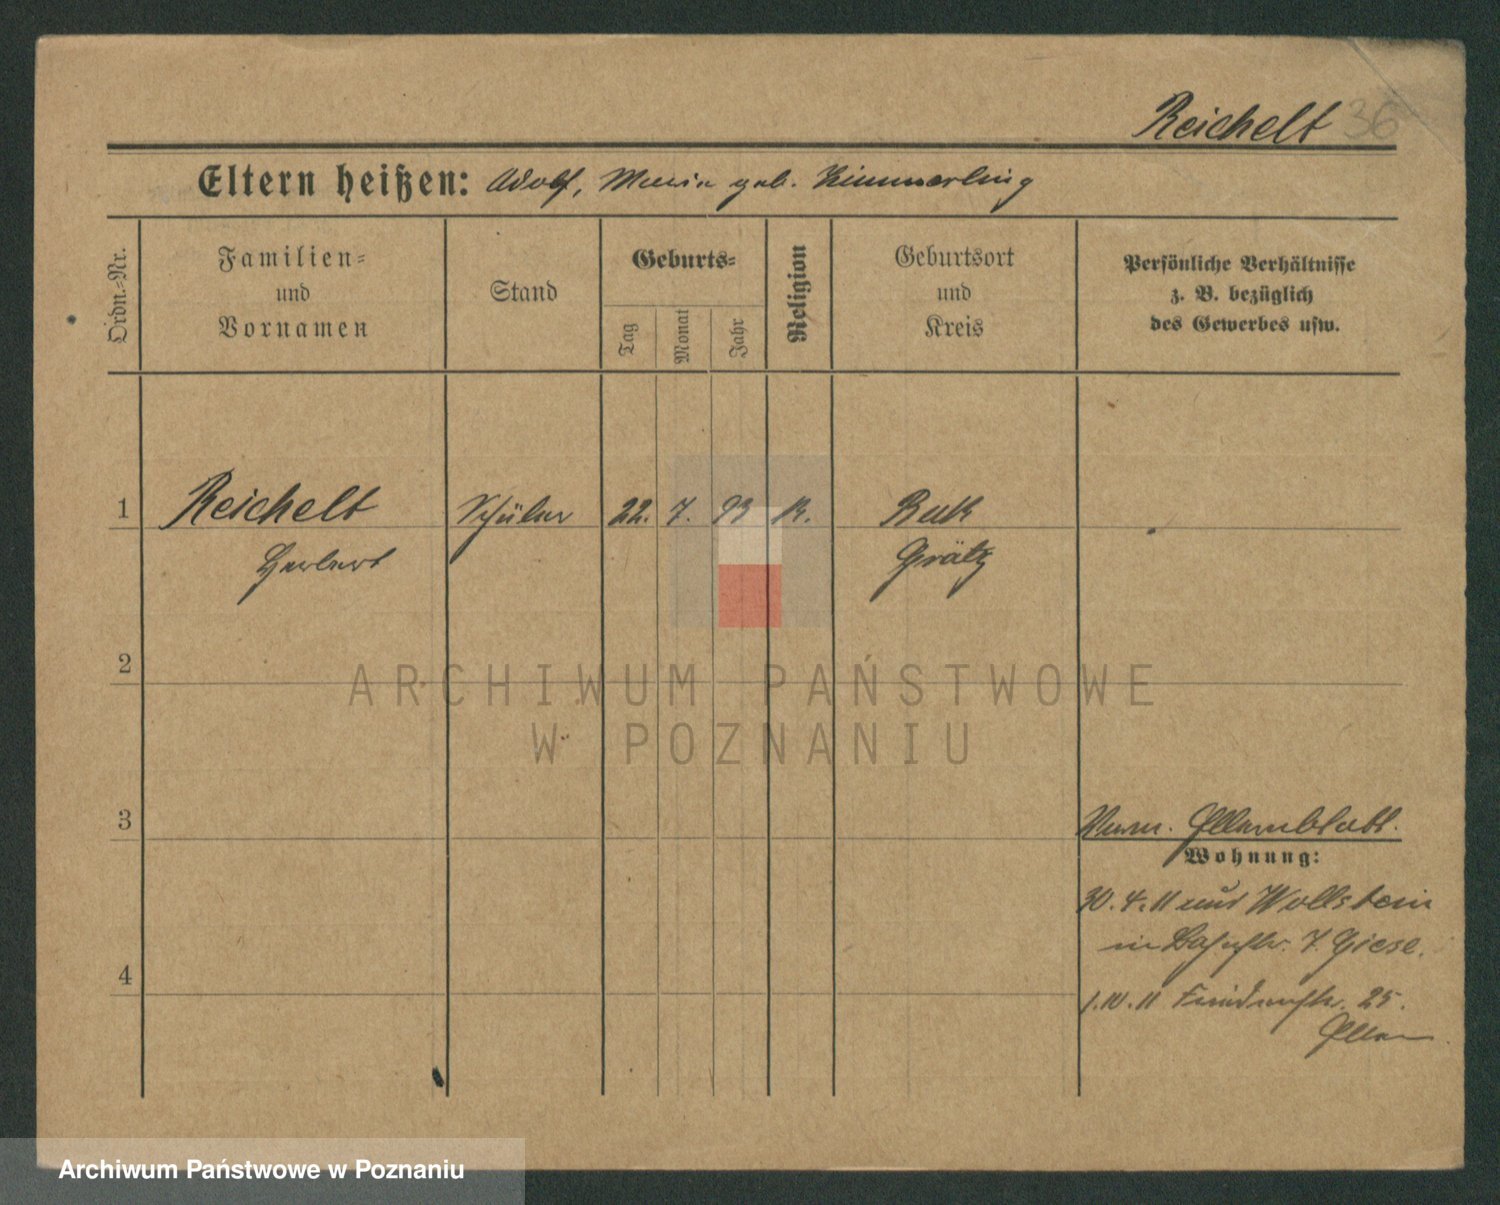 Reichelt 36
Eltern heißen: Adolf, Maria geb. Kimmerling
Ordn.-Nr.
Familien-
und
Vornamen
Stand
Geburts-
Tag
Monat
Jahr
Religion
Geburtsort
und
Kreis
Persönliche Verhältnisse
z. B. bezüglich
des Gewerbes usw.
1 Reichelt Schüler 22. 7. 93 K. Buk
Herbert Grätz
2
3
Verm. Elternblatt.
Wohnung:
30.4.11 aus Wollstein
in 7. Giese.
4
1.10.11 25.
Eltern
ARCHIWUM PAŃSTWOWE
W POZNANIU
Archiwum Państwowe w Poznaniu